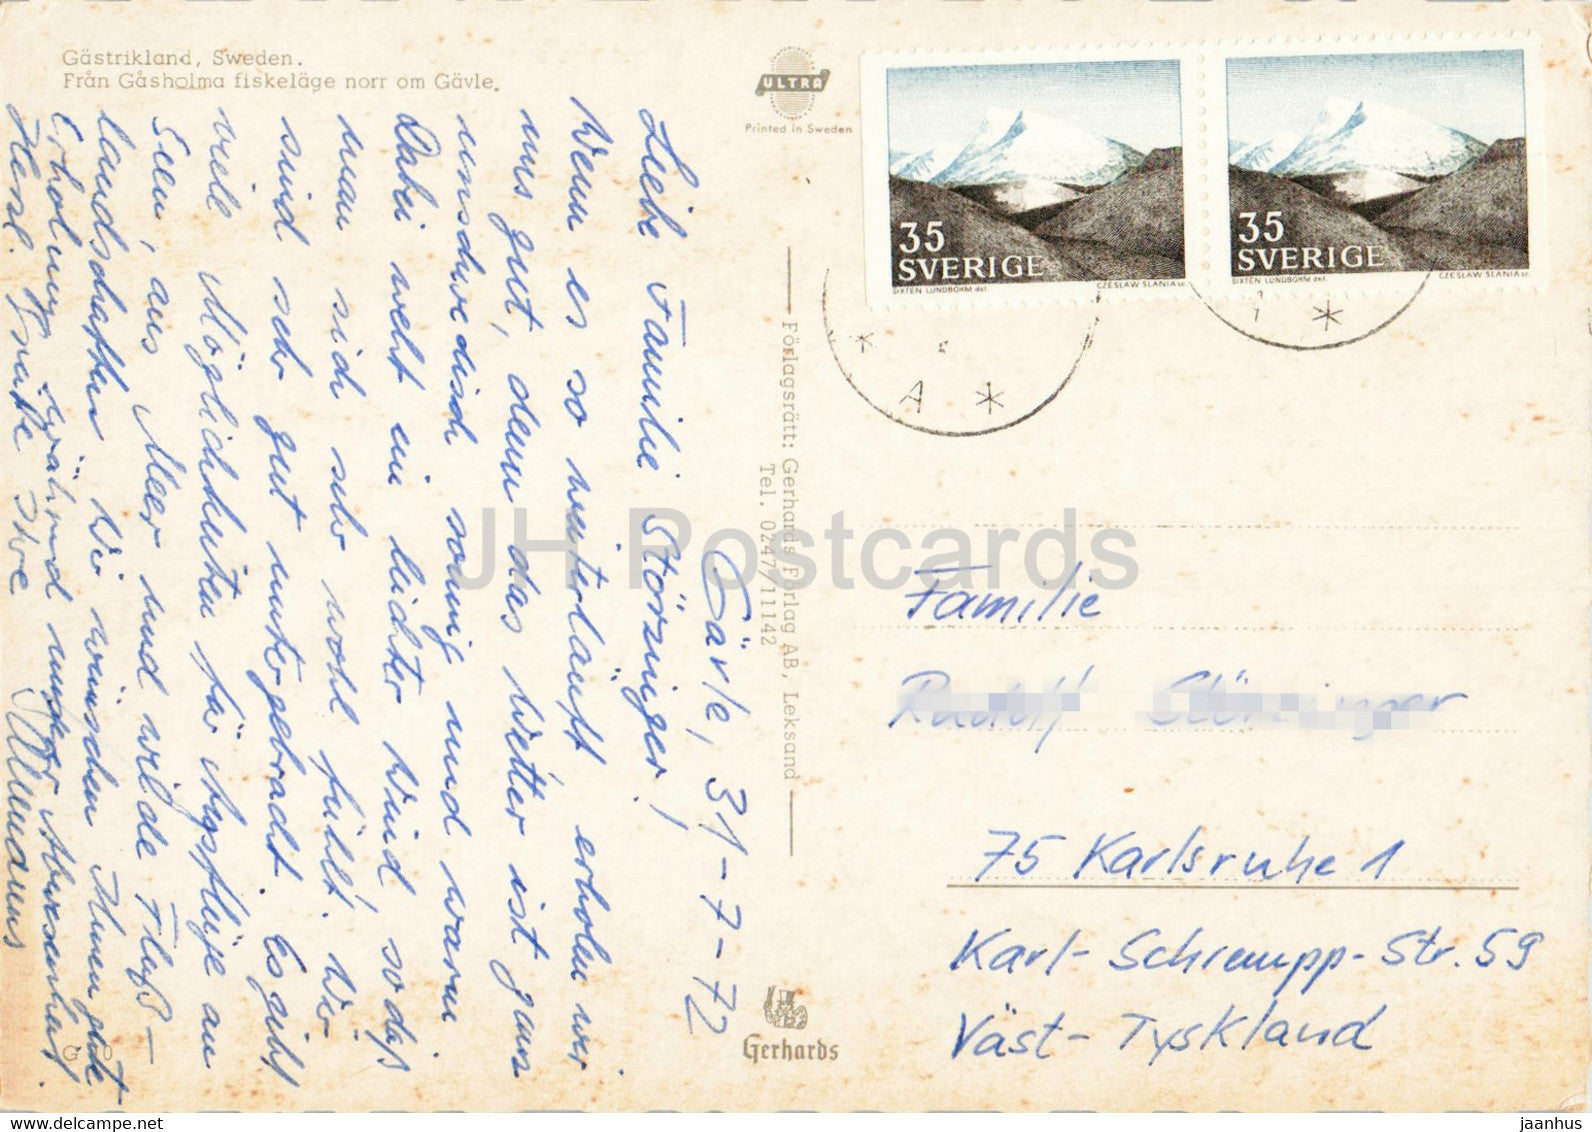 Gästrikland, Sweden.
Från Gåsholma fiskeläge norr om Gävle.
ULTRA
Printed in Sweden
35
SVERIGE
SIXTEN LUNDBOHM del.
CZESLAW SLANIA sc.
35
SVERIGE
SIXTEN LUNDBOHM del.
CZESLAW SLANIA sc.
A
Gävle, 31-7-72
Liebe Familie Störzinger!
Wenn es so weiterläuft, erholen wir
uns gut, denn das Wetter ist ganz
unschwedisch sonnig und warm.
Dabei weht ein leichter Wind, sodaß
man sich sehr wohl fühlt. Wir
sind sehr gut untergebracht. Es gibt
viele Möglichkeiten für Ausflüge an
Seen, ans Meer und wilde Fluß-
landschaften. Wir wünschen Ihnen gute
Erholung während unserer Abwesenheit.
Herzl. Grüße Ihre
Förlagsrätt: Gerhards Förlag AB, Leksand
Tel. 0247/11142
Gerhards
JH Postcards
Familie
Rudolf Störzinger
75 Karlsruhe 1
Karl-Schrempp-Str. 59
Väst-Tyskland
jaanhus